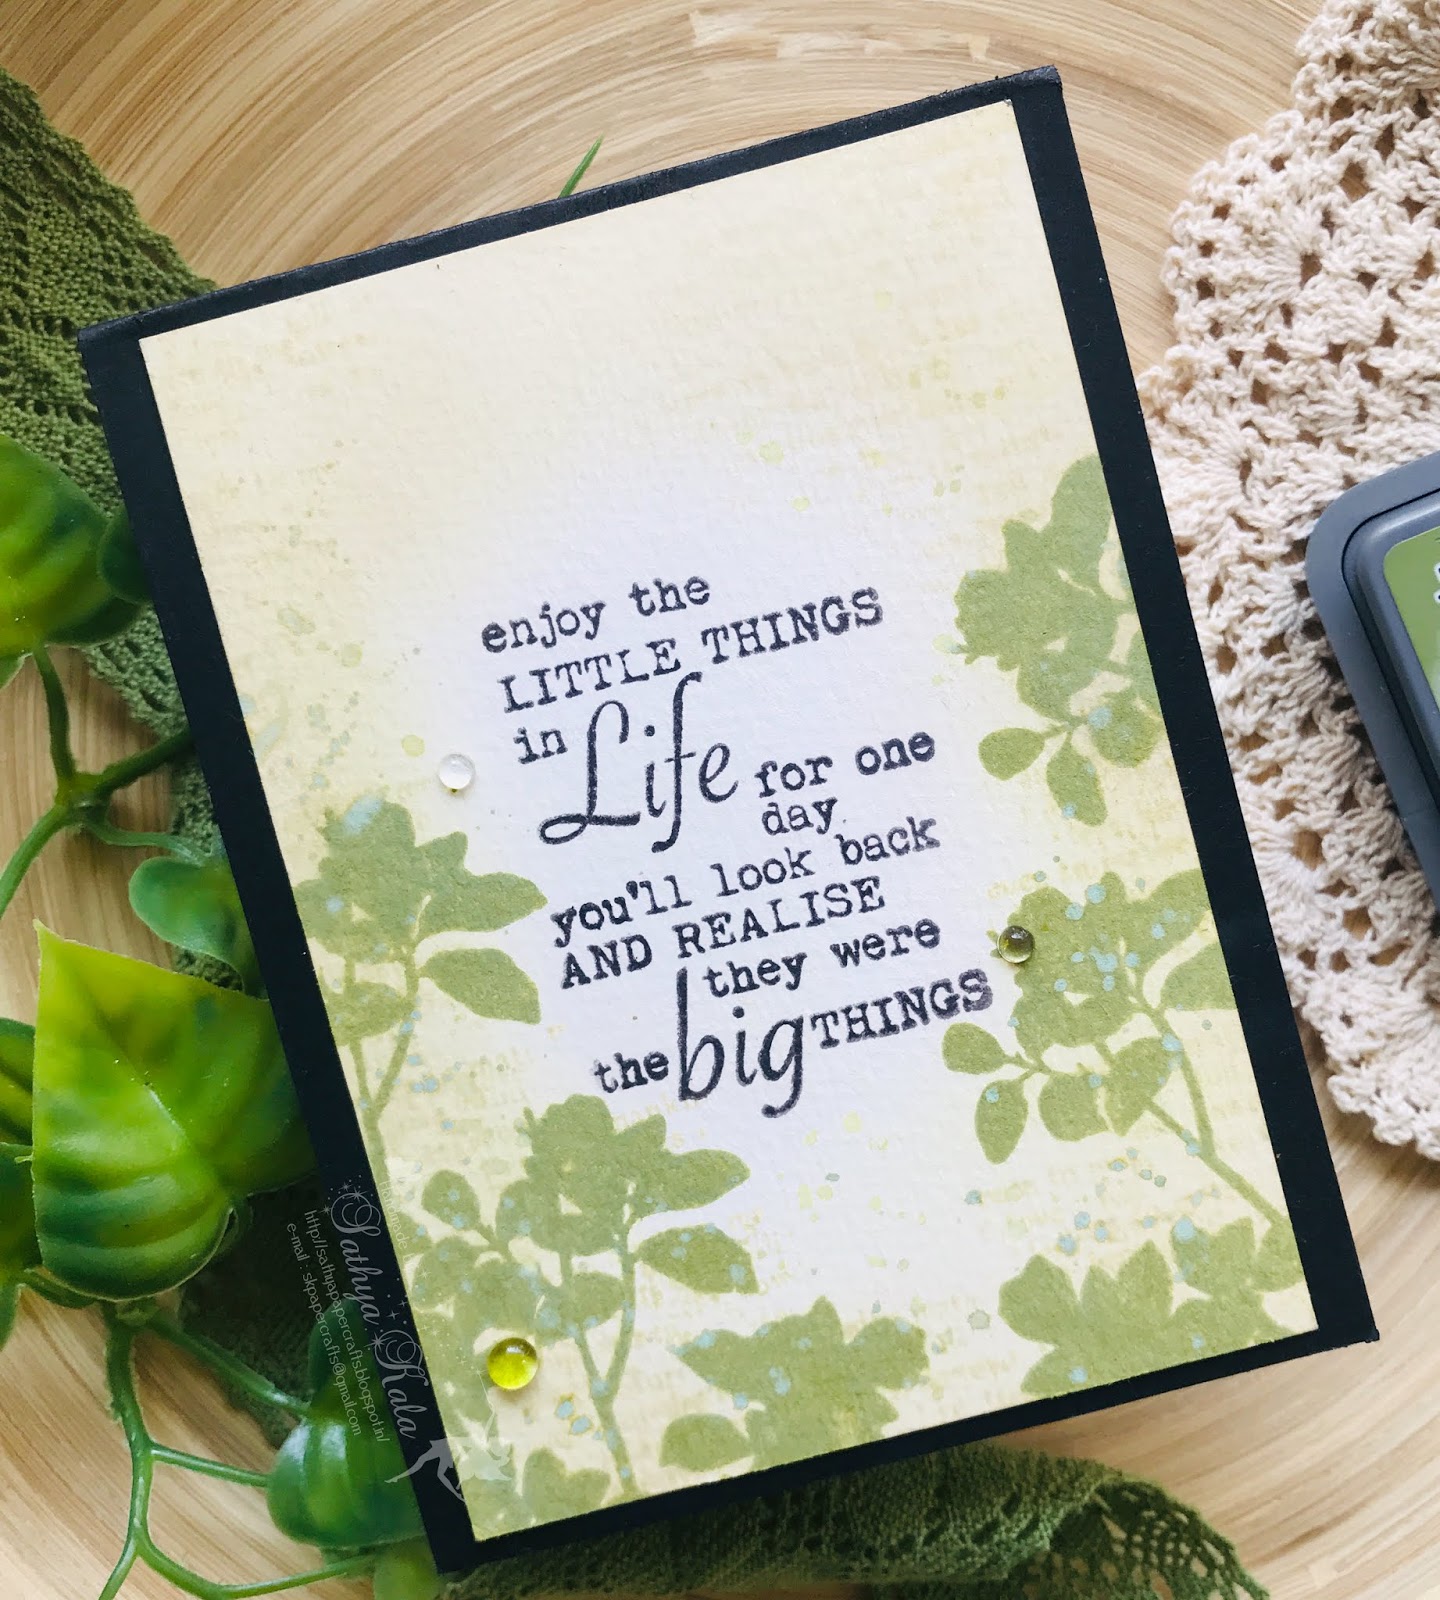 enjoy the
LITTLE THINGS
in Life for one
day
you'll look back
AND REALISE
they were
the big THINGS
Sathya Kala
http://sathyapapercrafts.blogspot.in/
e-mail : skpapercrafts@gmail.com